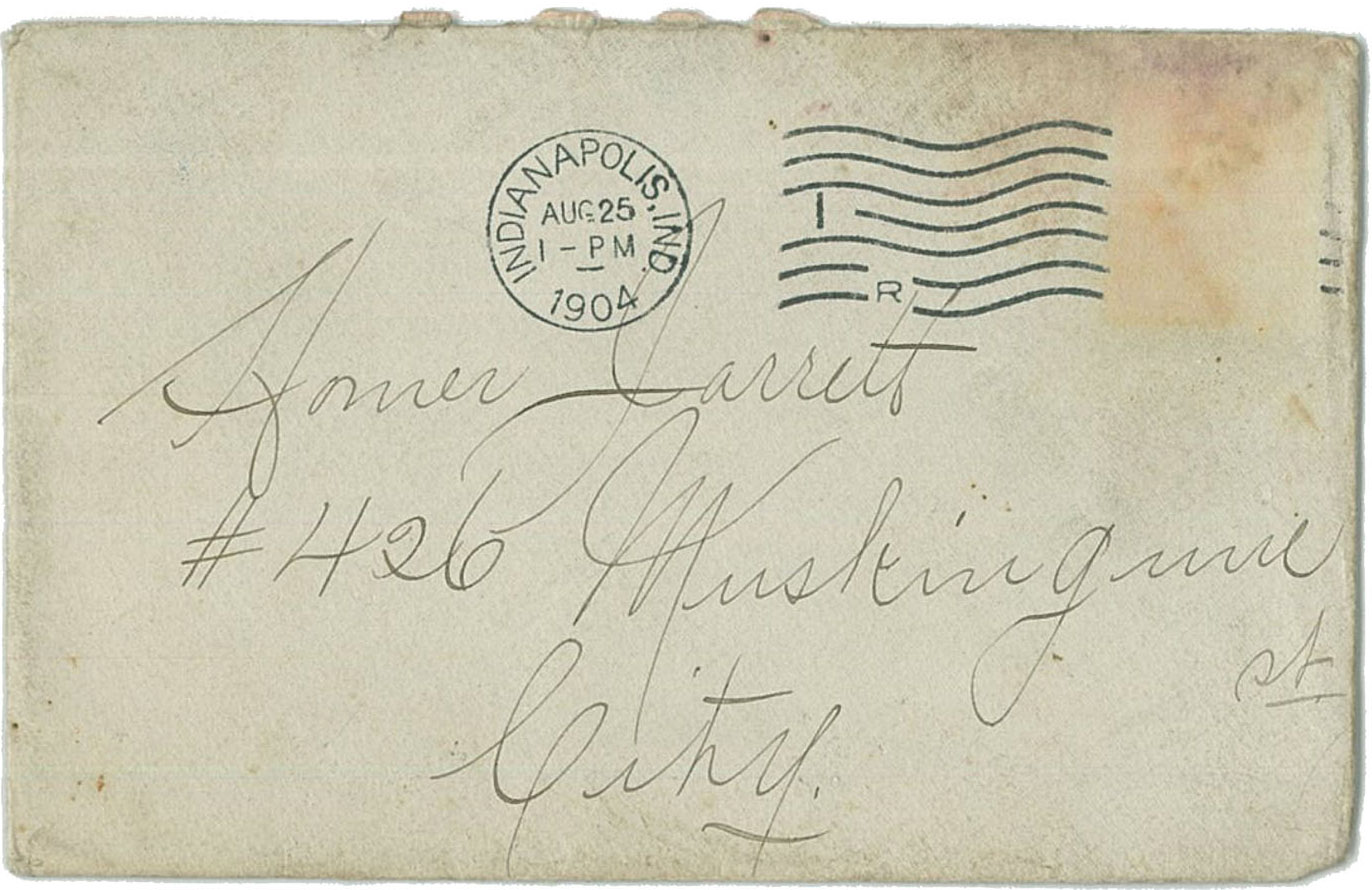 INDIANAPOLIS, IND.
AUG 25
1 - PM
1904
I
R
Homer Jarrett
# 426 Muskingum
st
City.